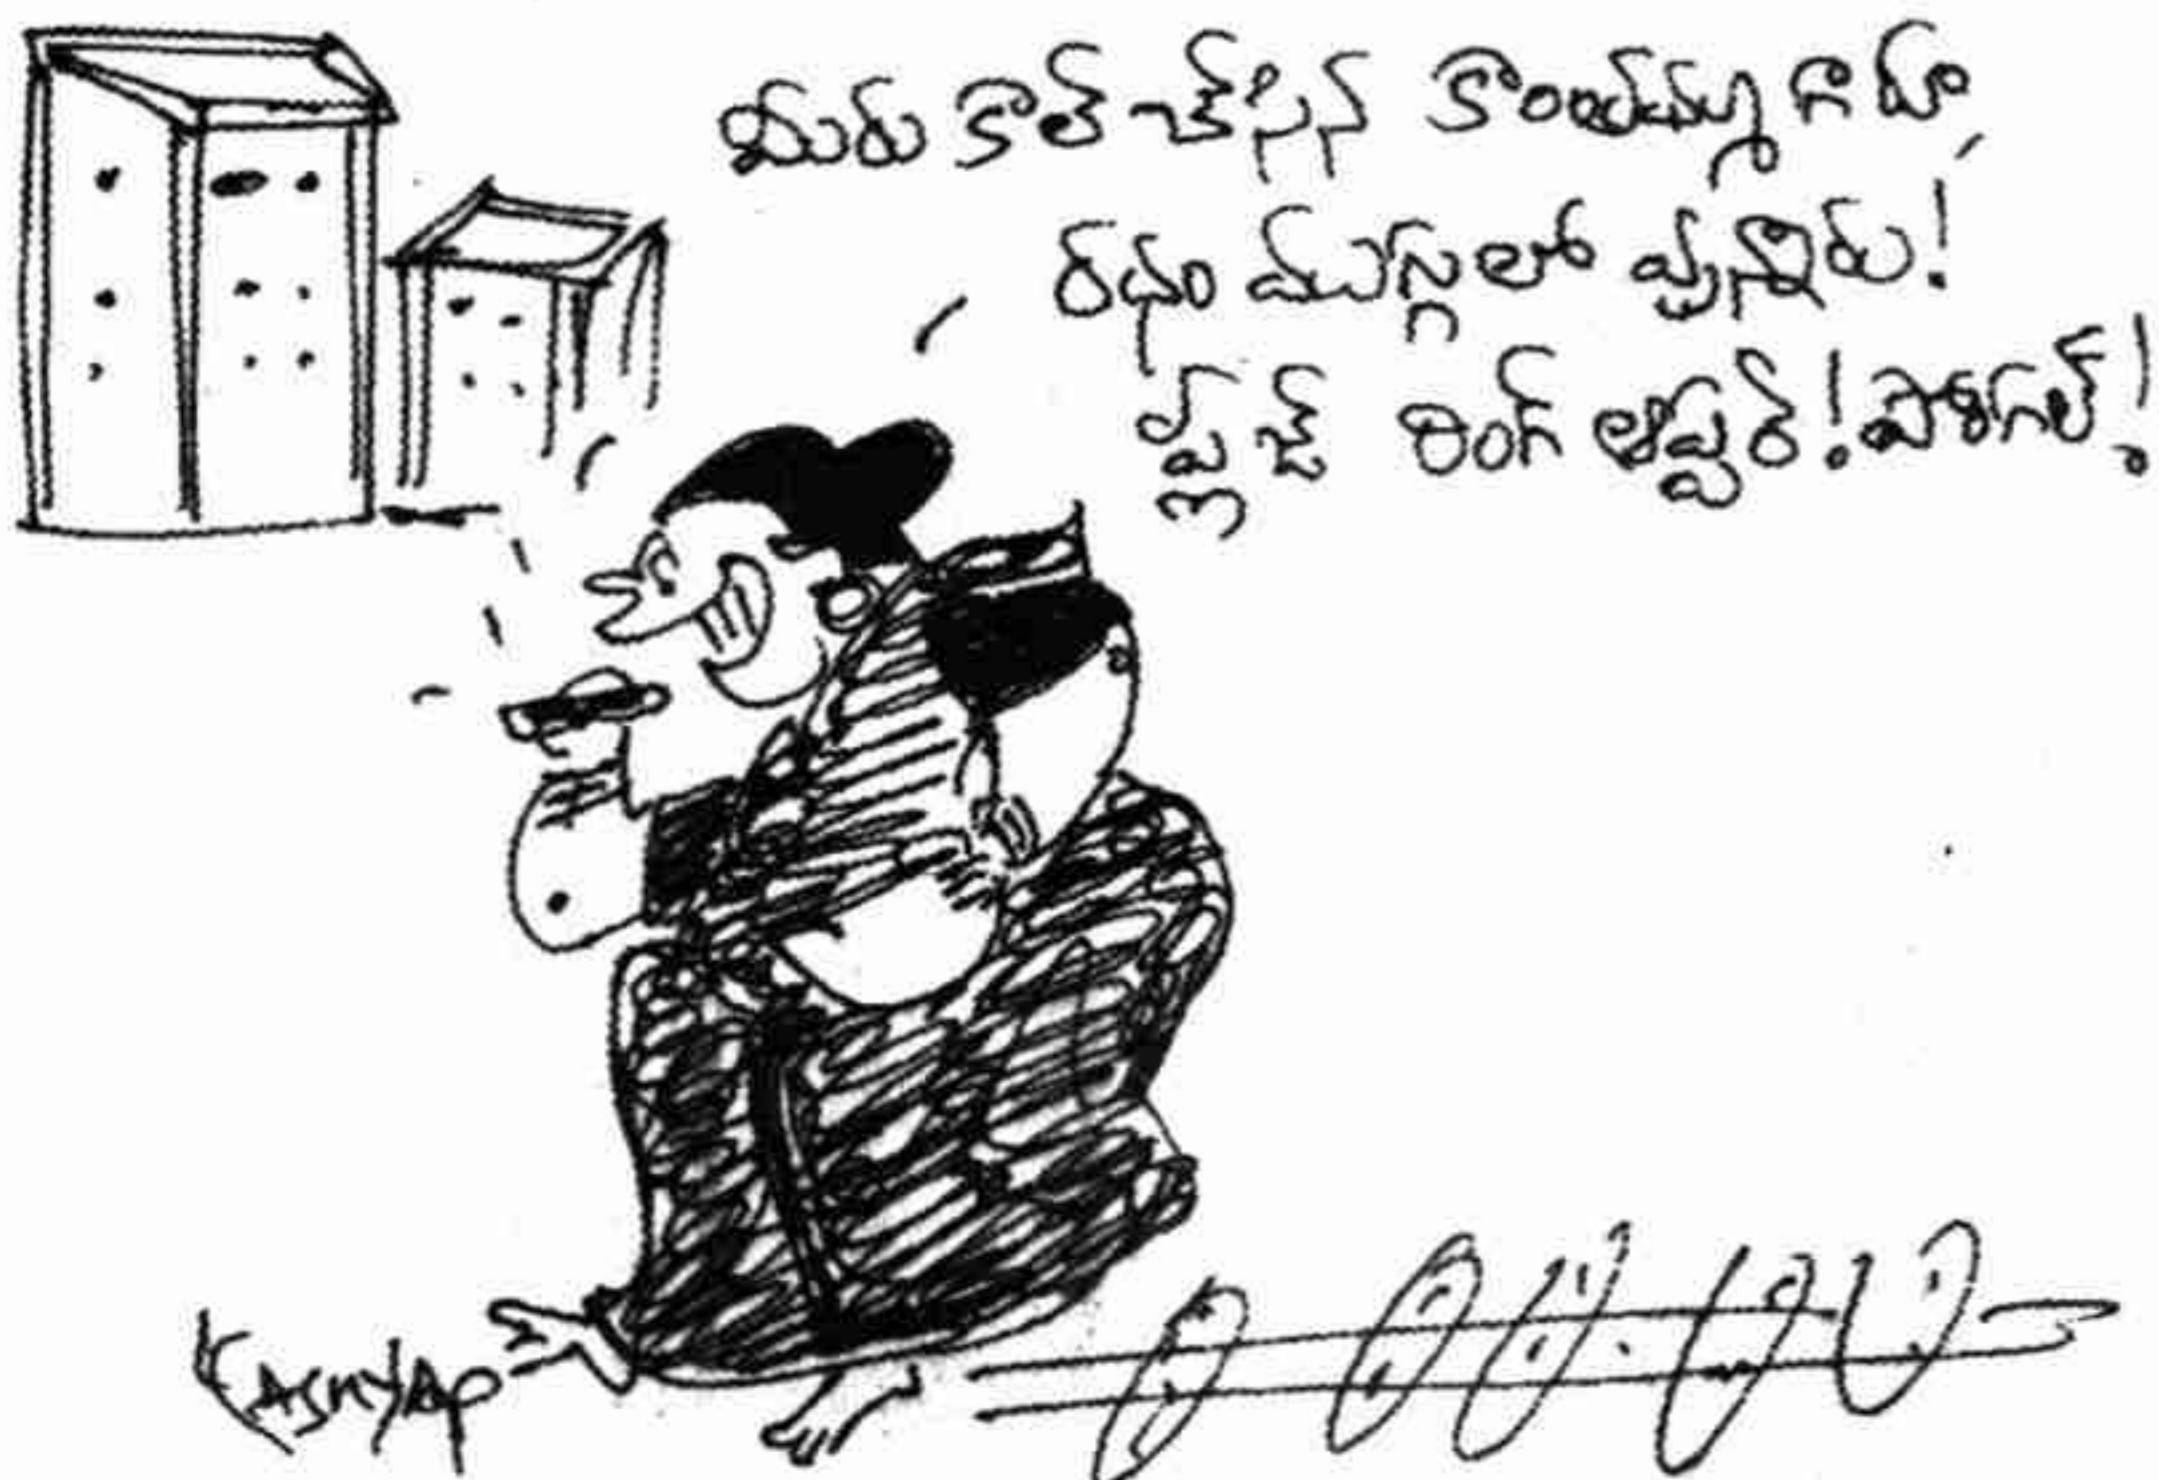 మీరు కాల్ చేసిన కాంతమ్మగారూ,
రథం ముగ్గులో వున్నారు!
ప్లీజ్ రింగ్ ఆఫ్టర్! పొంగల్!
KASHYAP